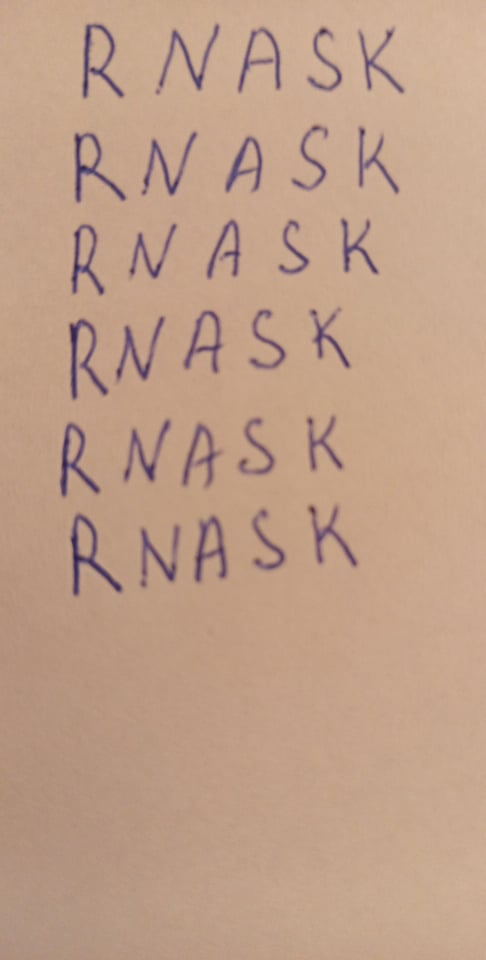 R N A S K
R N A S K
R N A S K
R N A S K
R N A S K
R N A S K